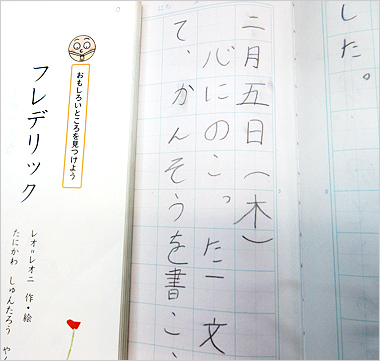 した。
二月五日（木）
心にのこった一文
て、かんそうを書こ
おもしろいところを見つけよう
フレデリック
レオ＝レオニ 作・絵
たにかわ しゅんたろう や